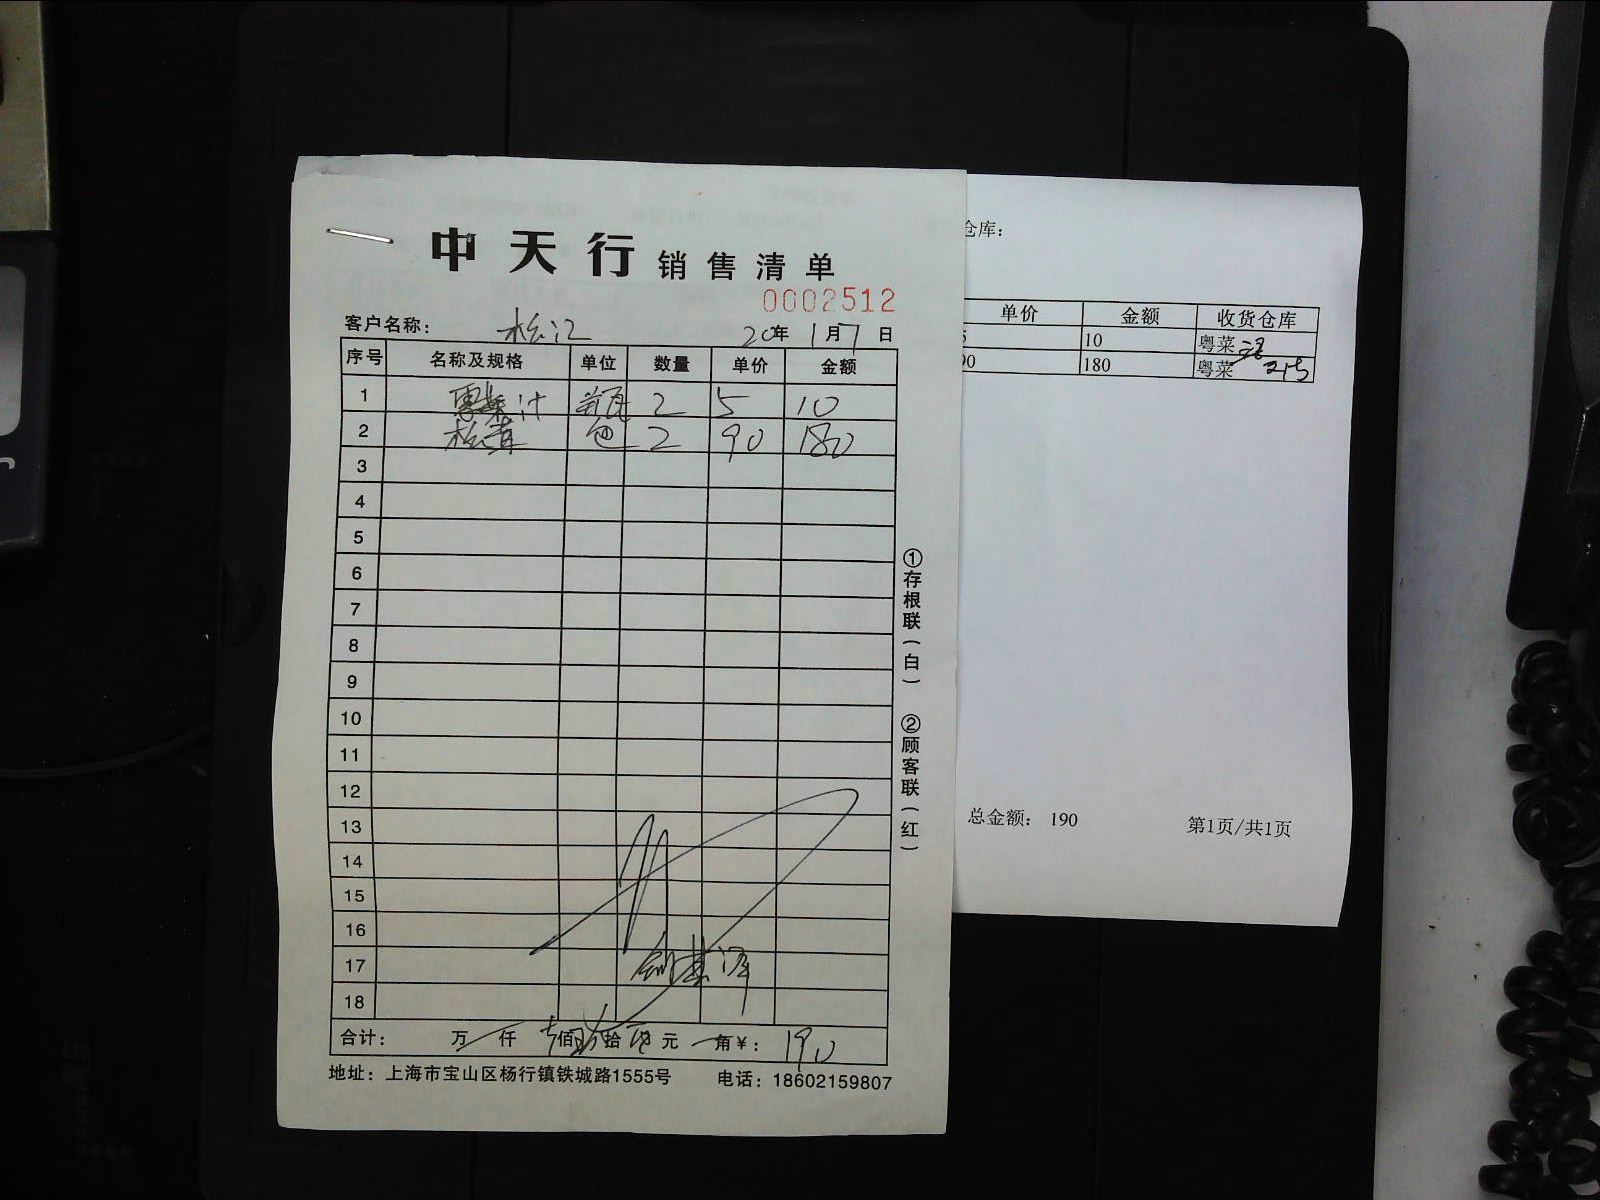 中天行 销售清单
0002512
客户名称： 松江 20年 1月7日
序号 名称及规格 单位 数量 单价 金额
1 瓶 2 5 10
2 松茸 包 2 90 180
3
4
5
6
7
8
9
10
11
12
13
14
15
16
17
18
合计： 万 仟 佰 拾 元 角 ¥： 190
地址：上海市宝山区杨行镇铁城路1555号 电话：18602159807
①存根联（白） ②顾客联（红）
仓库：
单价 金额 收货仓库
5 10 粤菜
90 180 粤菜
总金额： 190 第1页/共1页